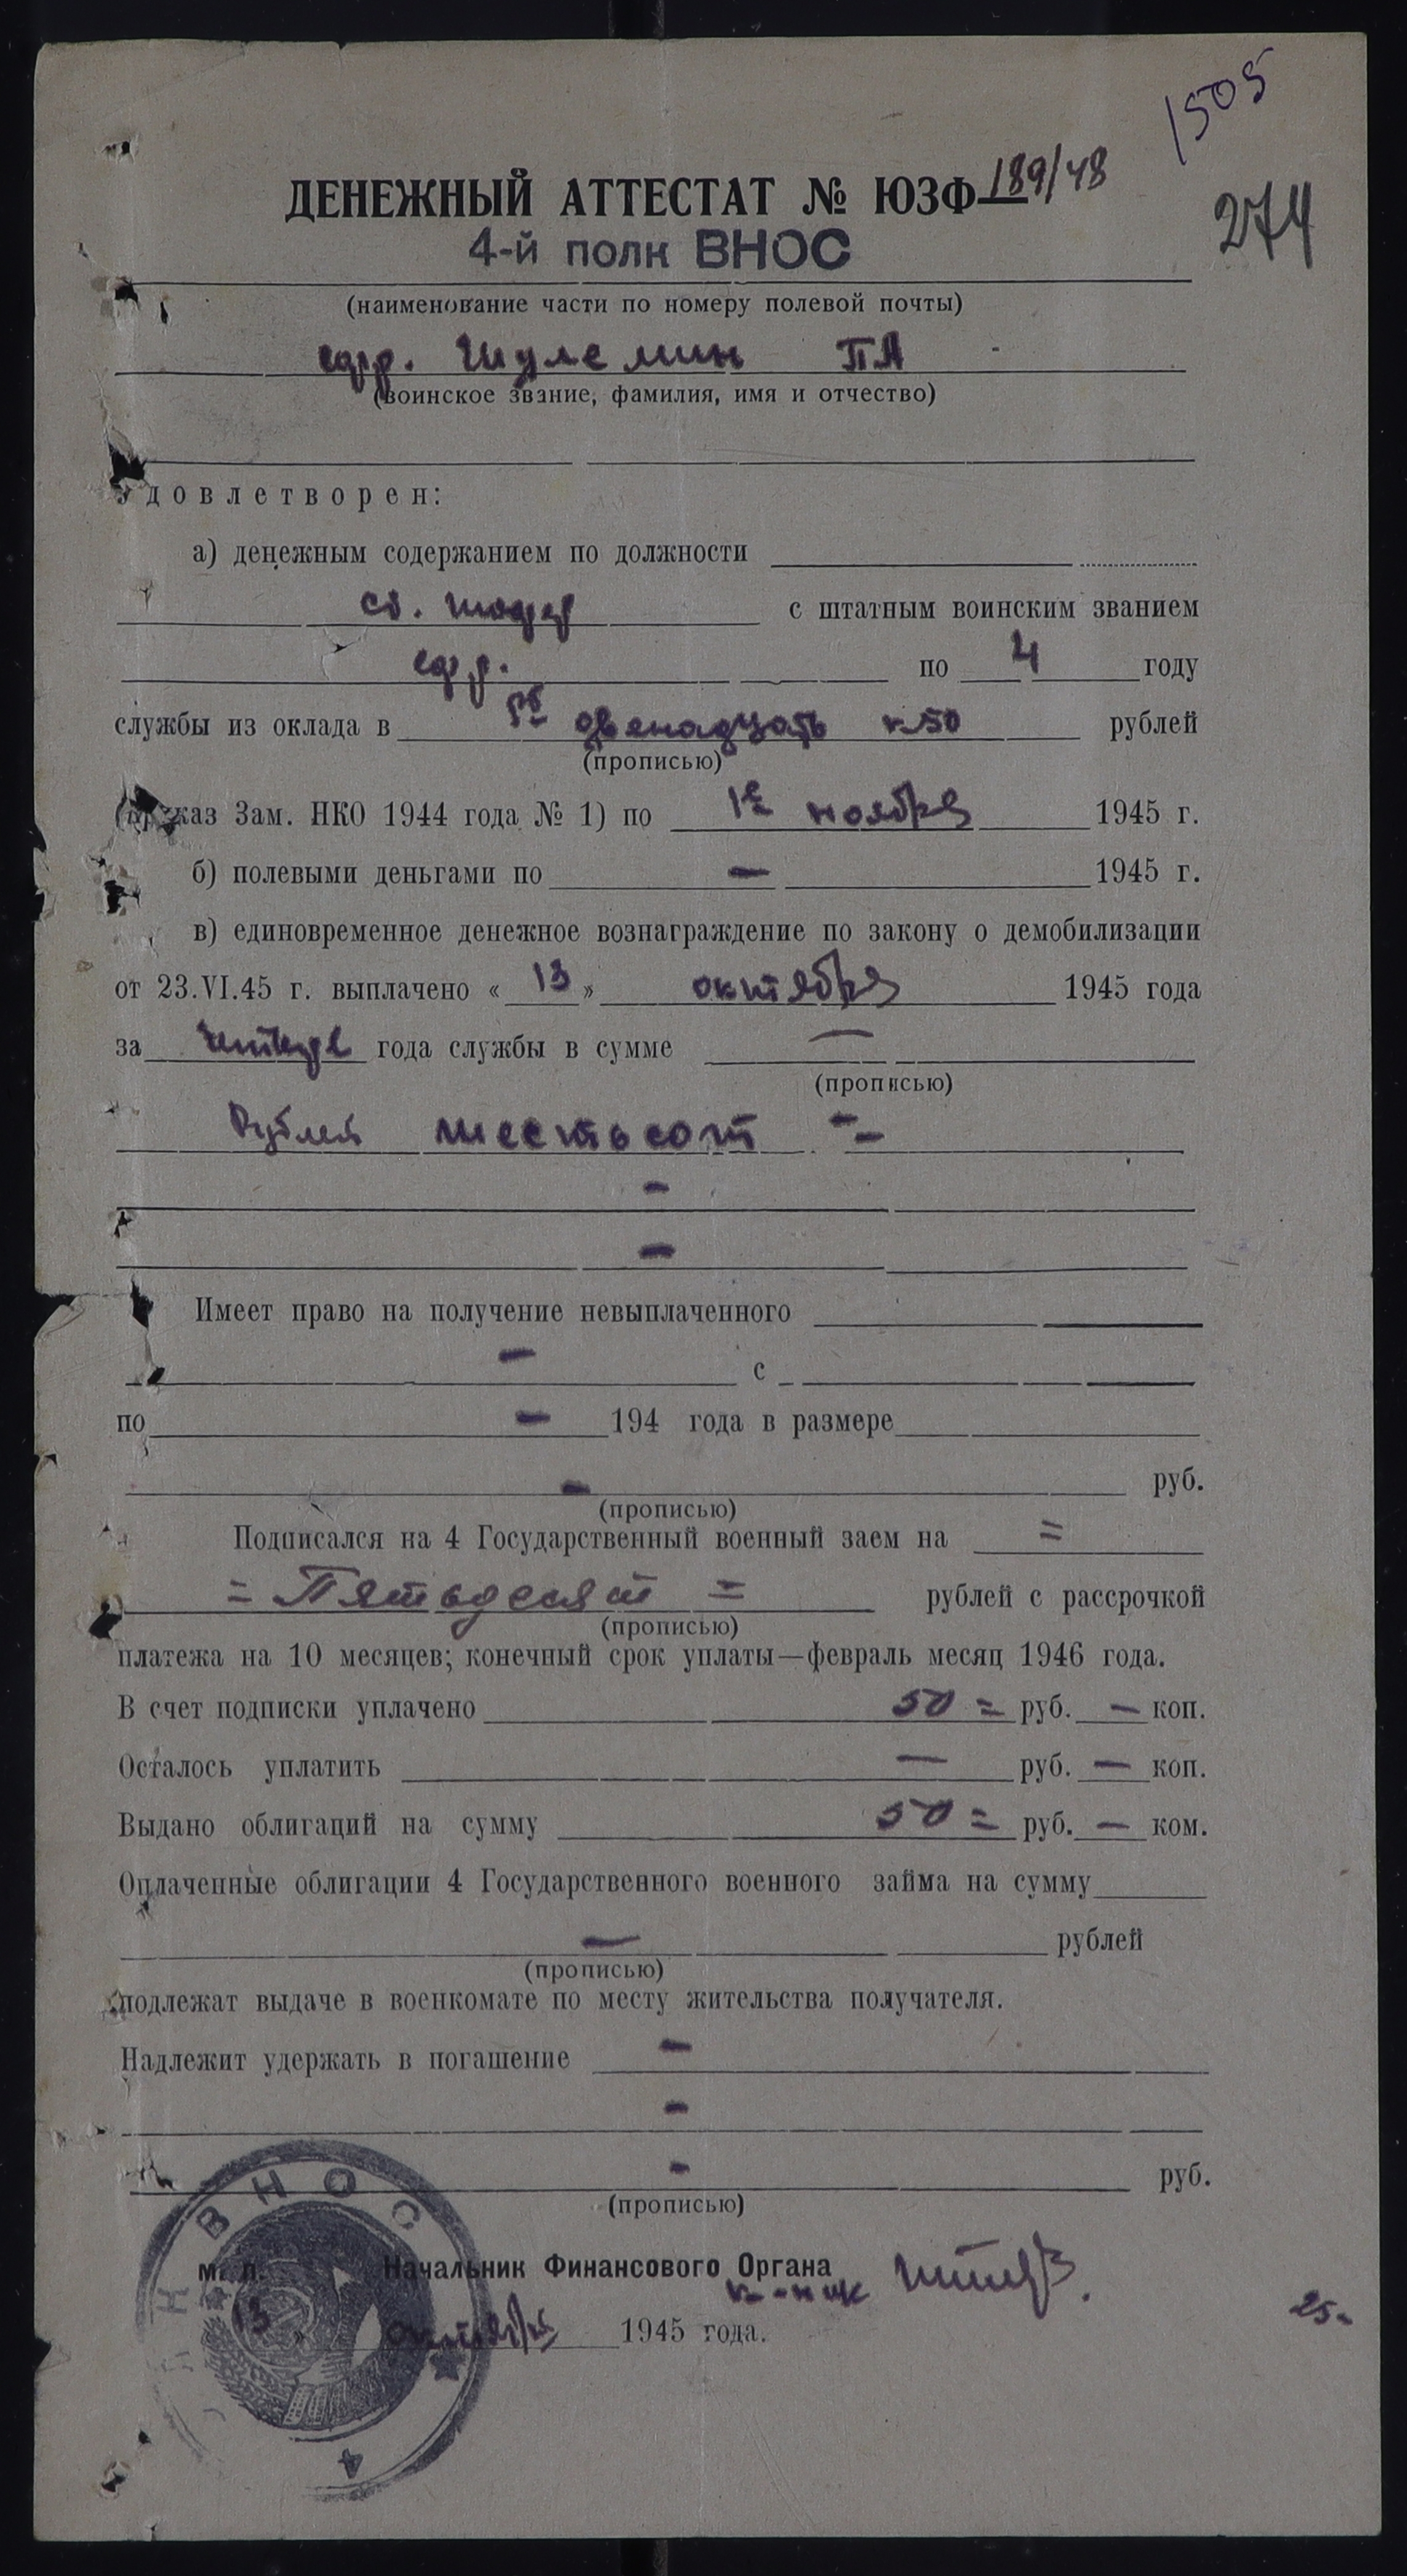 1505
ДЕНЕЖНЫЙ АТТЕСТАТ № ЮЗФ—189/48
274
4-й полк ВНОС
(наименование части по номеру полевой почты)
ефр. Шулемин ПА
(воинское звание, фамилия, имя и отчество)
Удовлетворен:
а) денежным содержанием по должности
ст. с штатным воинским званием
ефр. по 4 году
службы из оклада в двенадцать к50 рублей
(прописью)
(приказ Зам. НКО 1944 года № 1) по 1е ноября 1945 г.
б) полевыми деньгами по — 1945 г.
в) единовременное денежное вознаграждение по закону о демобилизации
от 23.VI.45 г. выплачено « 13 » октября 1945 года
за четыре года службы в сумме —
(прописью)
Рублей шестьсот - -
-
-
Имеет право на получение невыплаченного
- с
по - 194 года в размере
- руб.
(прописью)
Подписался на 4 Государственный военный заем на =
= Пятьдесят = рублей с рассрочкой
(прописью)
платежа на 10 месяцев; конечный срок уплаты—февраль месяц 1946 года.
В счет подписки уплачено 50 = руб. — коп.
Осталось уплатить — руб. — коп.
Выдано облигаций на сумму 50 = руб. — ком.
Оплаченные облигации 4 Государственного военного займа на сумму
— рублей
(прописью)
подлежат выдаче в военкомате по месту жительства получателя.
Надлежит удержать в погашение -
-
- руб.
(прописью)
ВНОС
М. П. Начальник Финансового Органа
13 » октября 1945 года.
25-
4